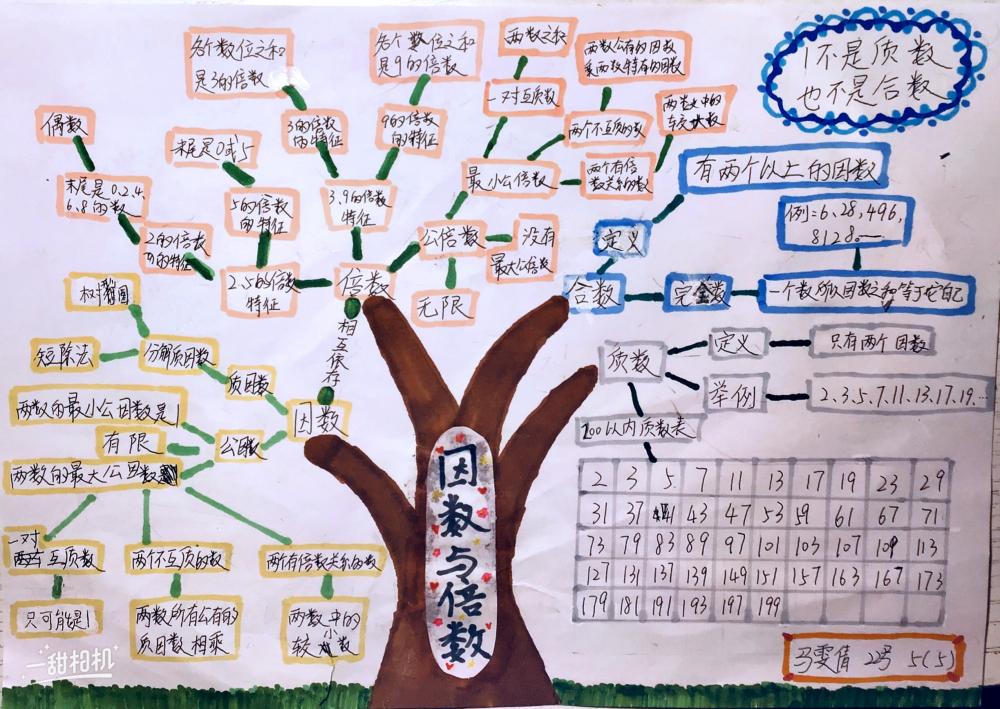 1不是质数
也不是合数
各个数位之和
是3的倍数
各个数位之和
是9的倍数
两数之积
两数公有的因数
乘两数特有的因数
一对互质数
两数中的
较大数
偶数
末尾是0或5
3的倍数
的特征
9的倍数
的特征
两个不互质的数
两个有倍
数关系的数
最小公倍数
末尾是0.2.4.
6.8的数
5的倍数
的特征
3.9的倍数
特征
公倍数
没有
最大公倍数
2的倍数
的特征
2.5的倍数
特征
倍数
无限
有两个以上的因数
定义
例=6,28,496,
8128……
合数
完全数
一个数所以因数之和等于它自己
相互依存
树形图
短除法
分解质因数
质因数
因数
两数的最小公因数是1
有限
公因数
两数的最大公因数
一对
互质数
两个不互质的数
两个有倍数关系的数
只可能是1
两数所有公有的
质因数相乘
两数中的
较小数
因数与倍数
质数
定义
只有两个因数
举例
2.3.5.7.11.13.17.19.…
200以内质数表
2 3 5 7 11 13 17 19 23 29
31 37 41 43 47 53 59 61 67 71
73 79 83 89 97 101 103 107 109 113
127 131 137 139 149 151 157 163 167 173
179 181 191 193 197 199
马雯倩 2号 5(5)
一甜相机